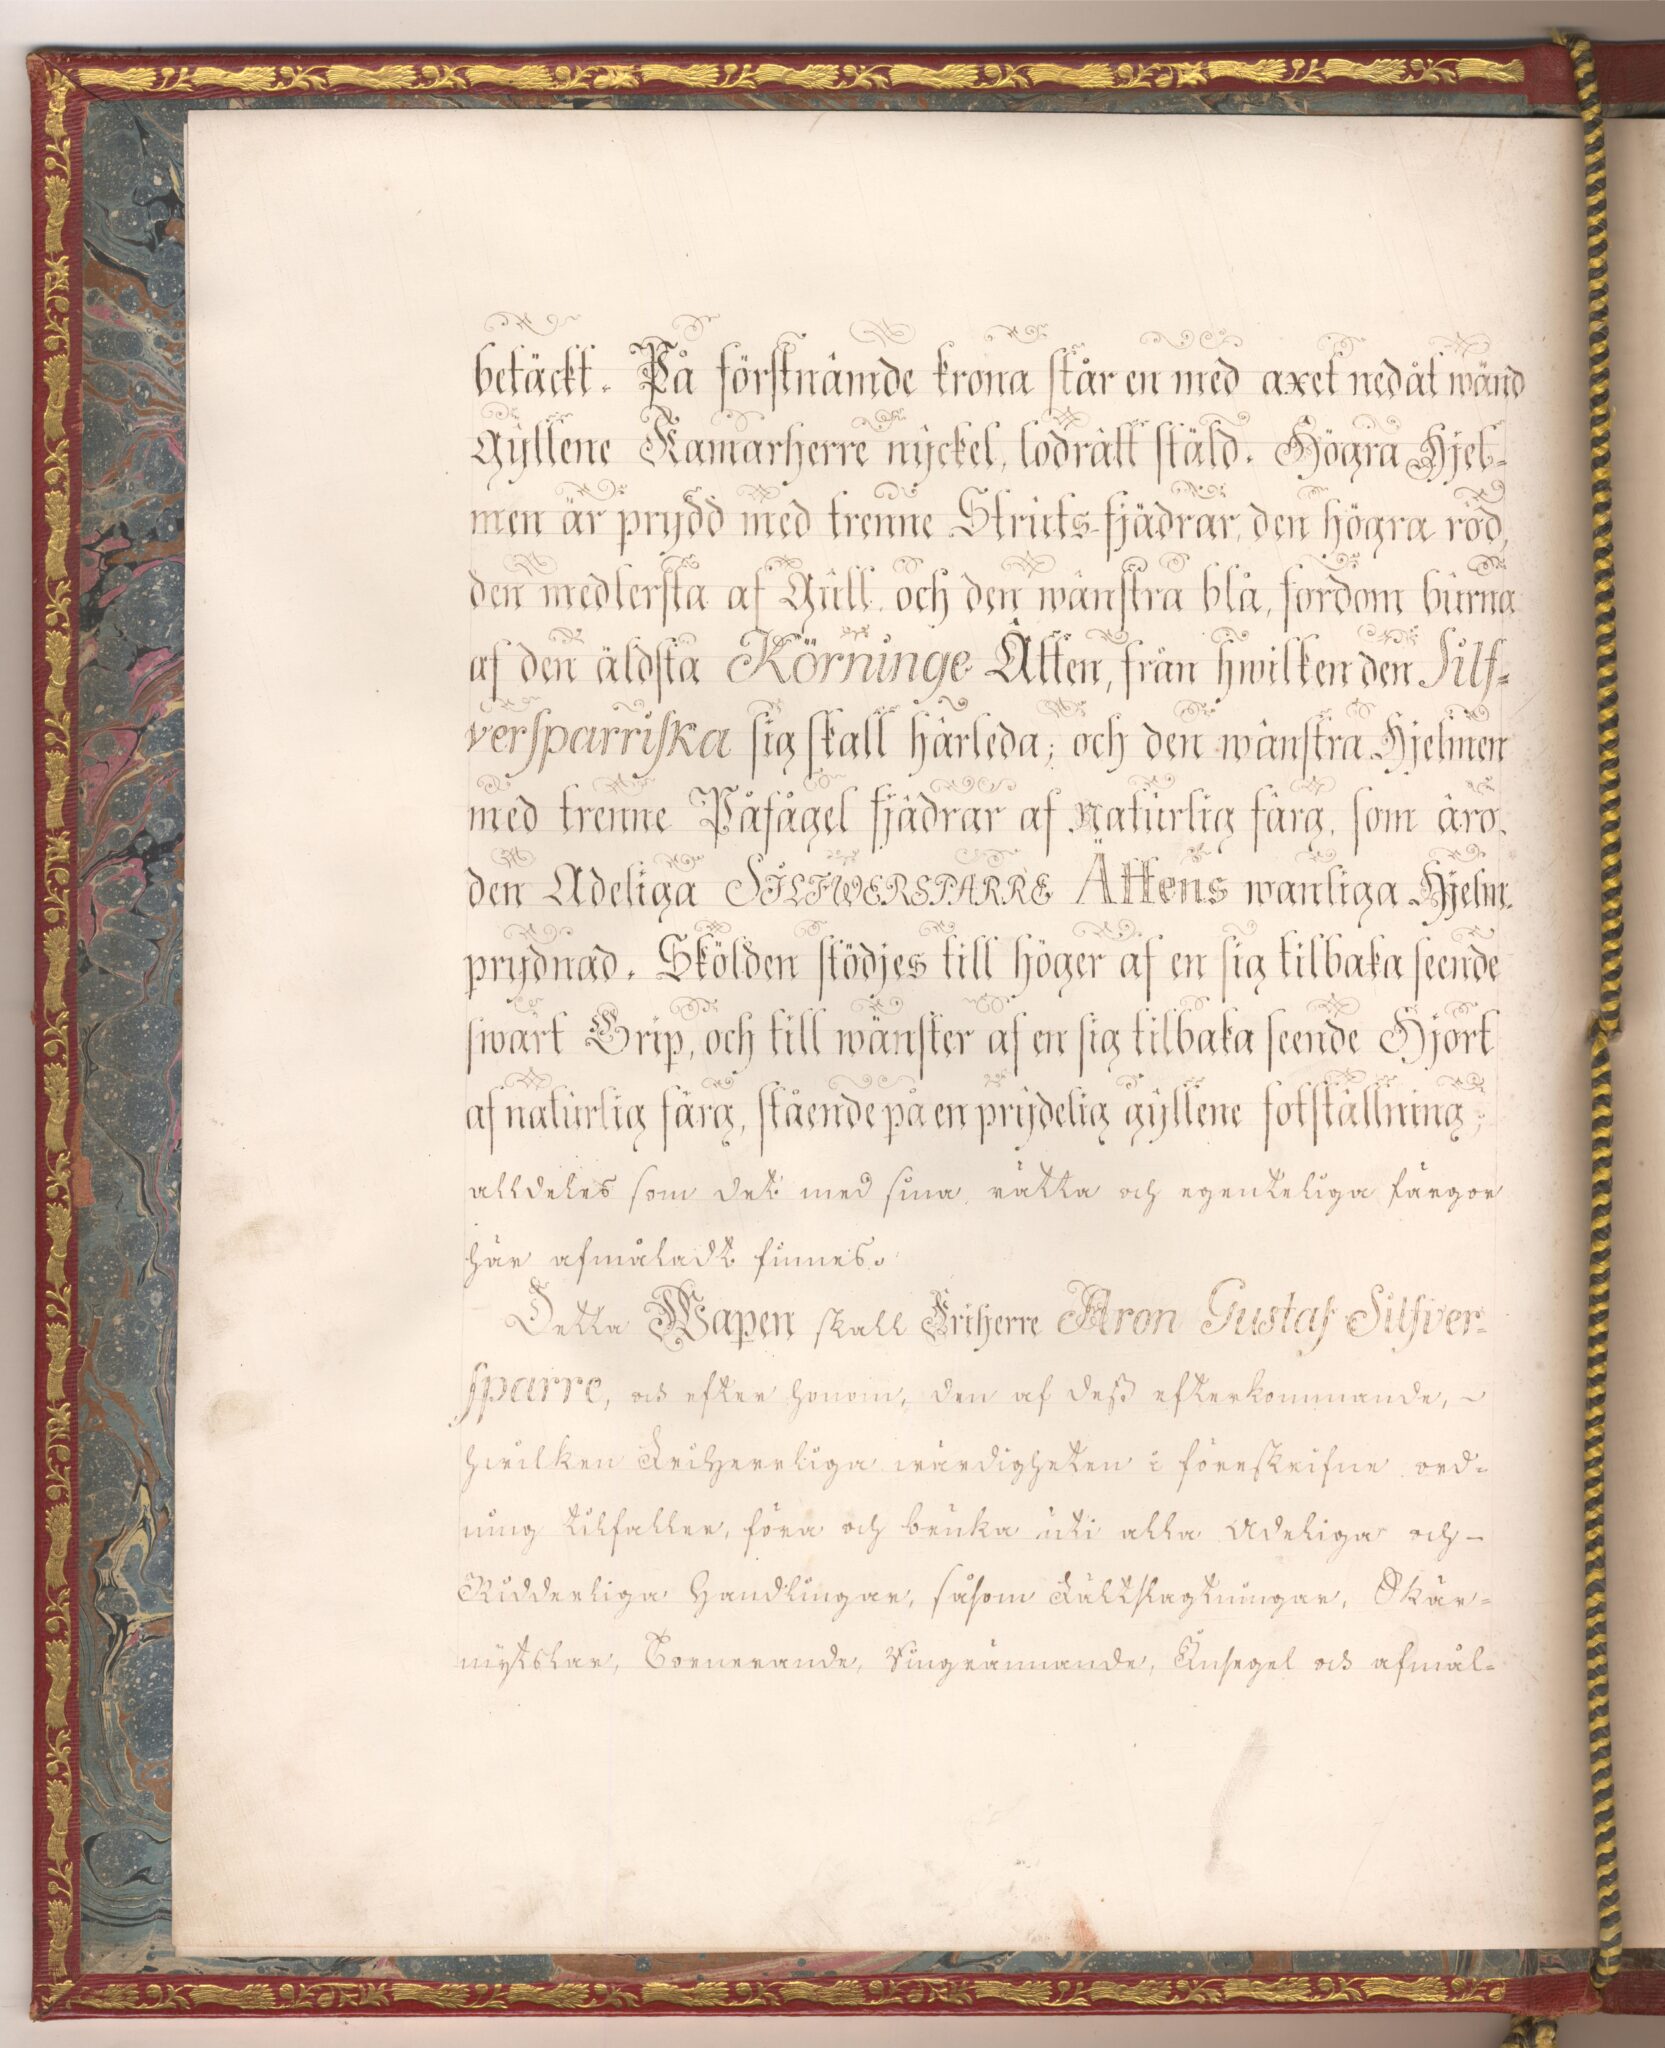 betäckt. På förstnämde krona står en med axet nedåt wänd
Gyllene Kamarherre nyckel, lodrätt stäld. Högra Hjel-
men är prydd med trenne Struts-fjädrar, den högra röd,
den medlersta af Gull, och den wänstra blå, fordom burna
af den äldsta Körninge Ätten, från hwilken den Silf-
versparriska sig skall härleda; och den wänstra Hjelmen
med trenne Påfågel fjädrar af naturlig färg, som äro
den Adeliga SILFWERSPARRE Ättens wanliga Hjelm-
prydnad. Skölden stödjes till höger af en sig tilbaka seende
swart Grip, och till wänster af en sig tilbaka seende Hjort
af naturlig färg, stående på en prydelig gyllene fotställning;
alldeles som det med sina rätta och egenteliga färgor
här afmåladt finnes.
Detta Wapen skall Friherre Aron Gustaf Silfver-
sparre, och efter honom, den af dess efterkommande,
hwilken Friherrliga wärdigheten i föreskrifne ord-
ning tilfaller, föra och bruka uti alla Adeliga och
Ridderliga Handlingar, såsom Fältslagtningar, Skär-
mytslar, Tornerande, Ringrännande, Insegel och afmål-